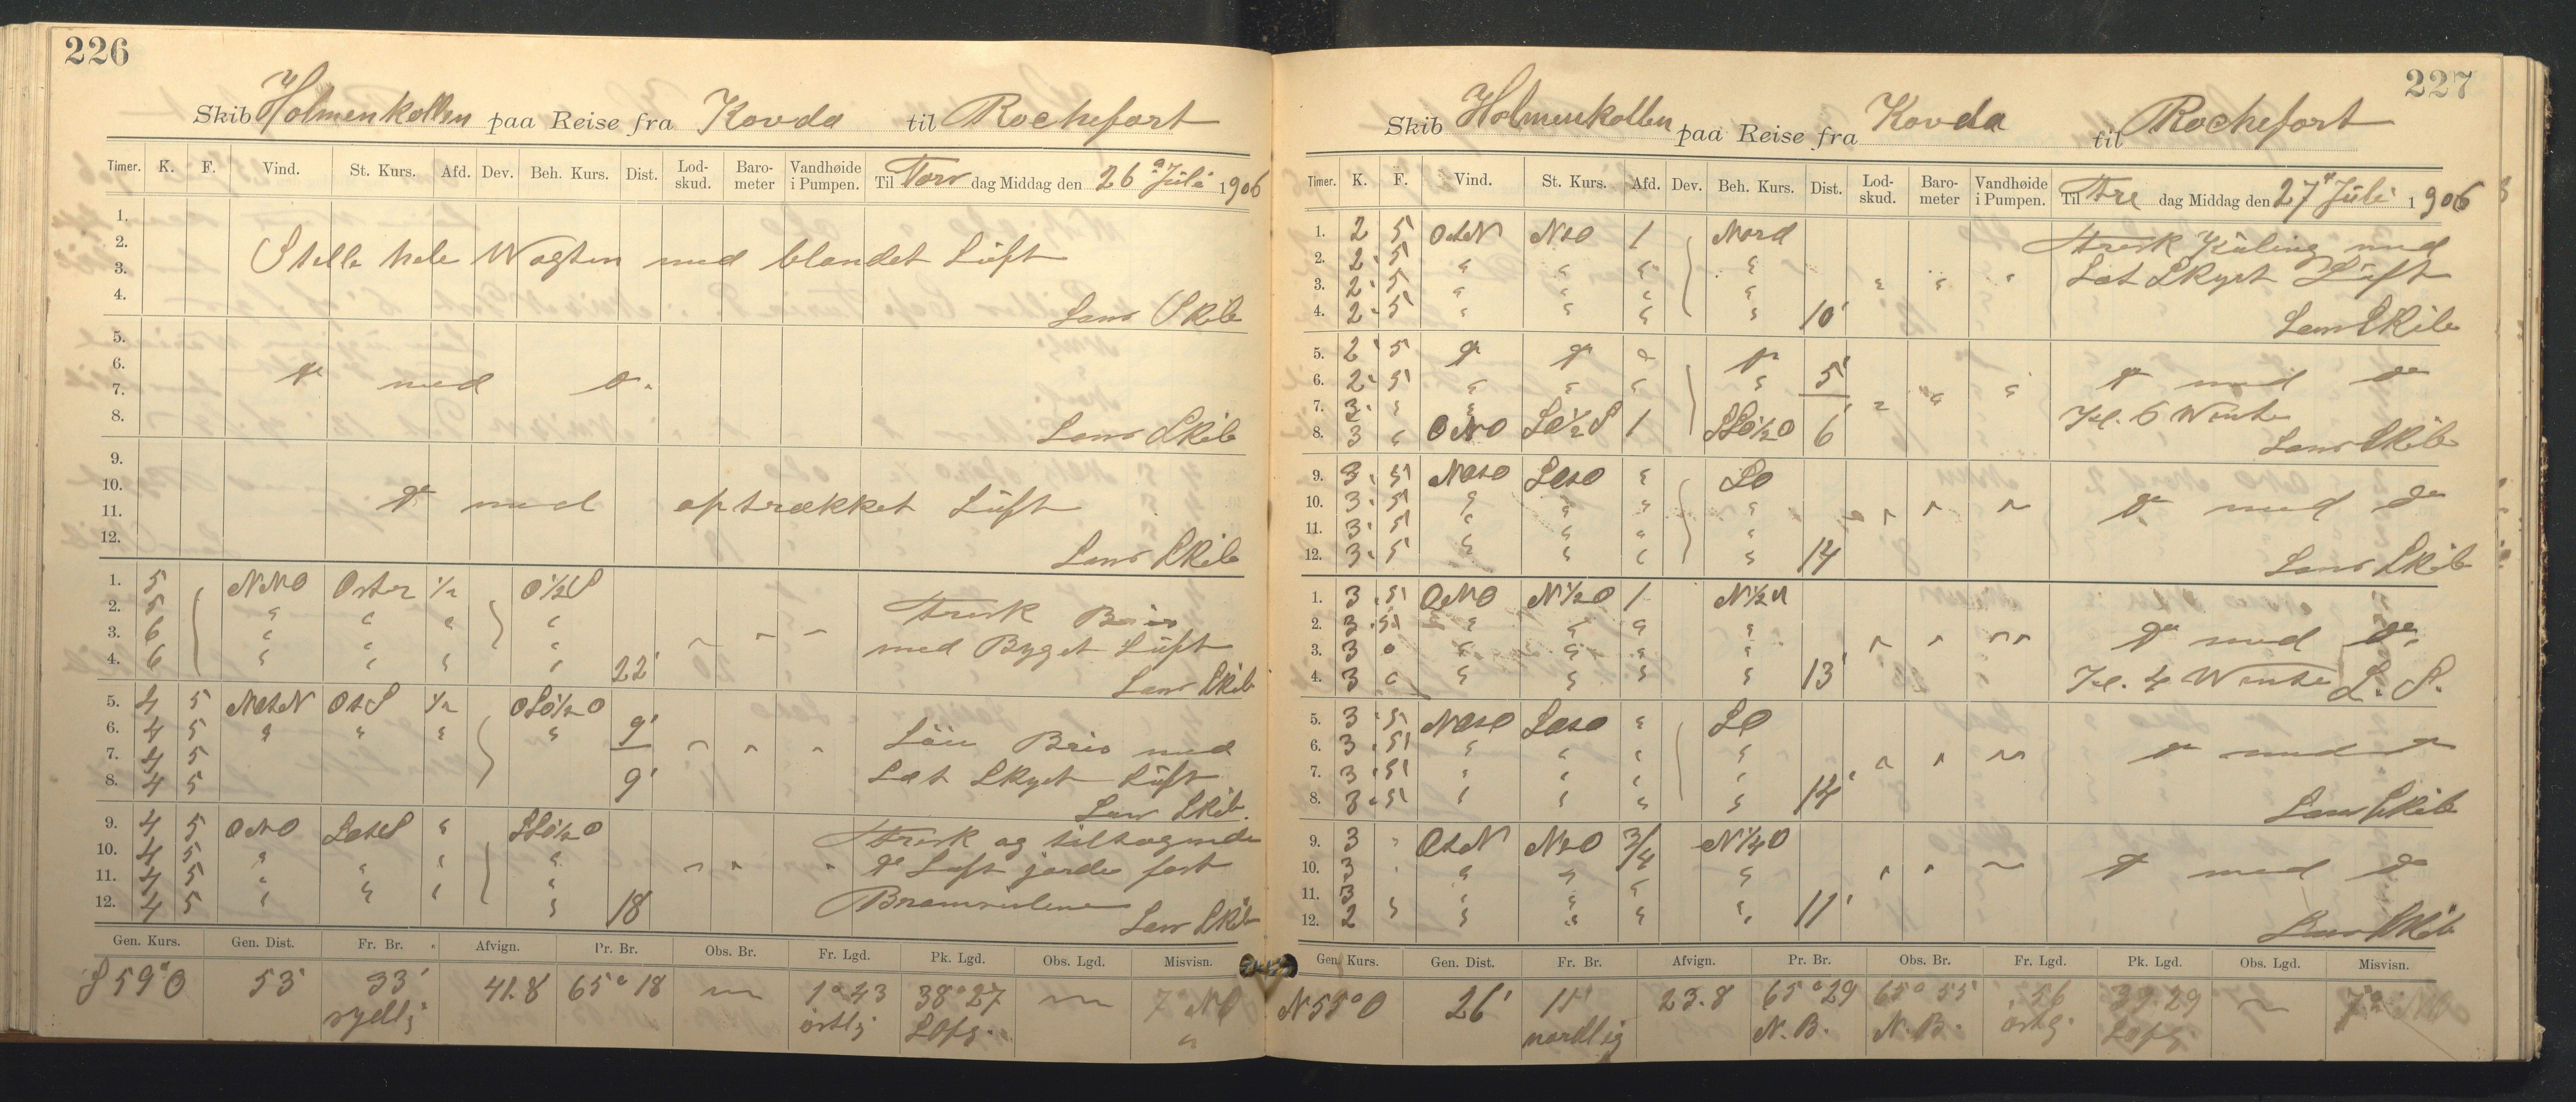 226
Skib Holmenkollen paa Reise fra Kovda til Rochefort
Timer. K. F. Vind. St. Kurs. Afd. Dev. Beh. Kurs. Dist. Lod-skud. Baro-meter Vandhøide i Pumpen. Til Tors dag Middag den 26 Juli 1906
1.
2. Stille hele Wagten med blandet Lüft
3.
4. Lens Skib
5.
6. do med do
7.
8. Lens Skib
9.
10. do med optrækket Lüft
11.
12. Lens Skib
1. 5 NNO Oster 1/2 O1/2S
2. 5 " " " " Frisk Bris
3. 6 " " " med Byget Lüft
4. 6 " " " " 22' Lens Skib
5. 4 5 NOtN OtS 1/2 OSO1/2O
6. 4 5 " " " " 9' Løi Bris med
7. 4 5 Let Skyet Lüft
8. 4 5 9' Lens Skib.
9. 4 5 ONO SOtS " SSO1/2O Frisk og tiltagende
10. 4 5 " " " " do Luft gjorde fast
11. 4 5 " " " Bramseilene
12. 4 5 " " " " 18 Lens Skib
Gen. Kurs. Gen. Dist. Fr. Br. Afvign. Pr. Br. Obs. Br. Fr. Lgd. Pk. Lgd. Obs. Lgd. Misvisn.
S 59° O 53' 33' sydlig 41.8 65° 18 — 1° 43 østlig 38° 27 — 7° NO
227
Skib Holmenkollen paa Reise fra Kovda til Rochefort
Timer. K. F. Vind. St. Kurs. Afd. Dev. Beh. Kurs. Dist. Lod-skud. Baro-meter Vandhøide i Pumpen. Til Fre dag Middag den 27 Juli 1906
1. 2 5 OtN NtO 1 Nord Frisk Küling med
2. 2 5 " " " " Let Skyet Lüft
3. 2 5 " " " "
4. 2 5 " " " " 10' Lens Skib
5. 2 5 do do do do
6. 2 5 " " " " 5' do med do
7. 3 " " Kl. 6 Wente
8. 3 " ONO SO1/2S 1 SSO1/2O 6' Lens Skib
9. 3 5 " SO
10. 3 5 " " " " do med do
11. 3 5 " " " "
12. 3 5 " " " " 14 Lens Skib
1. 3 5 ONO N1/2O 1
2. 3 5 " " " " do med do
3. 3 " " " "
4. 3 " " " " 13' Kl. 4 Wente L. S.
5. 3 5 " SO
6. 3 5 " " " " do med do
7. 3 5 " " " "
8. 3 5 " " " " 14' Lens Skib
9. 3 " OtN NtO 3/4 N1/4O
10. 3 " " " " do med do
11. 3 " " "
12. 2 " " " " 11' Lens Skib
Gen. Kurs. Gen. Dist. Fr. Br. Afvign. Pr. Br. Obs. Br. Fr. Lgd. Pk. Lgd. Obs. Lgd. Misvisn.
N 55° O 26' 11' nordlig 23.8 65° 29 N. B. 65° 55 N. B. 56 østlig 39.29 — 7° NO